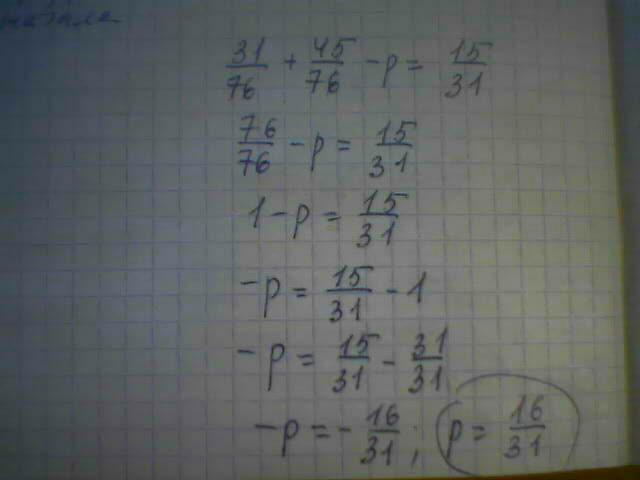 начала
31/76 + 45/76 - p = 15/31
76/76 - p = 15/31
1 - p = 15/31
-p = 15/31 - 1
-p = 15/31 - 31/31
-p = - 16/31; p = 16/31